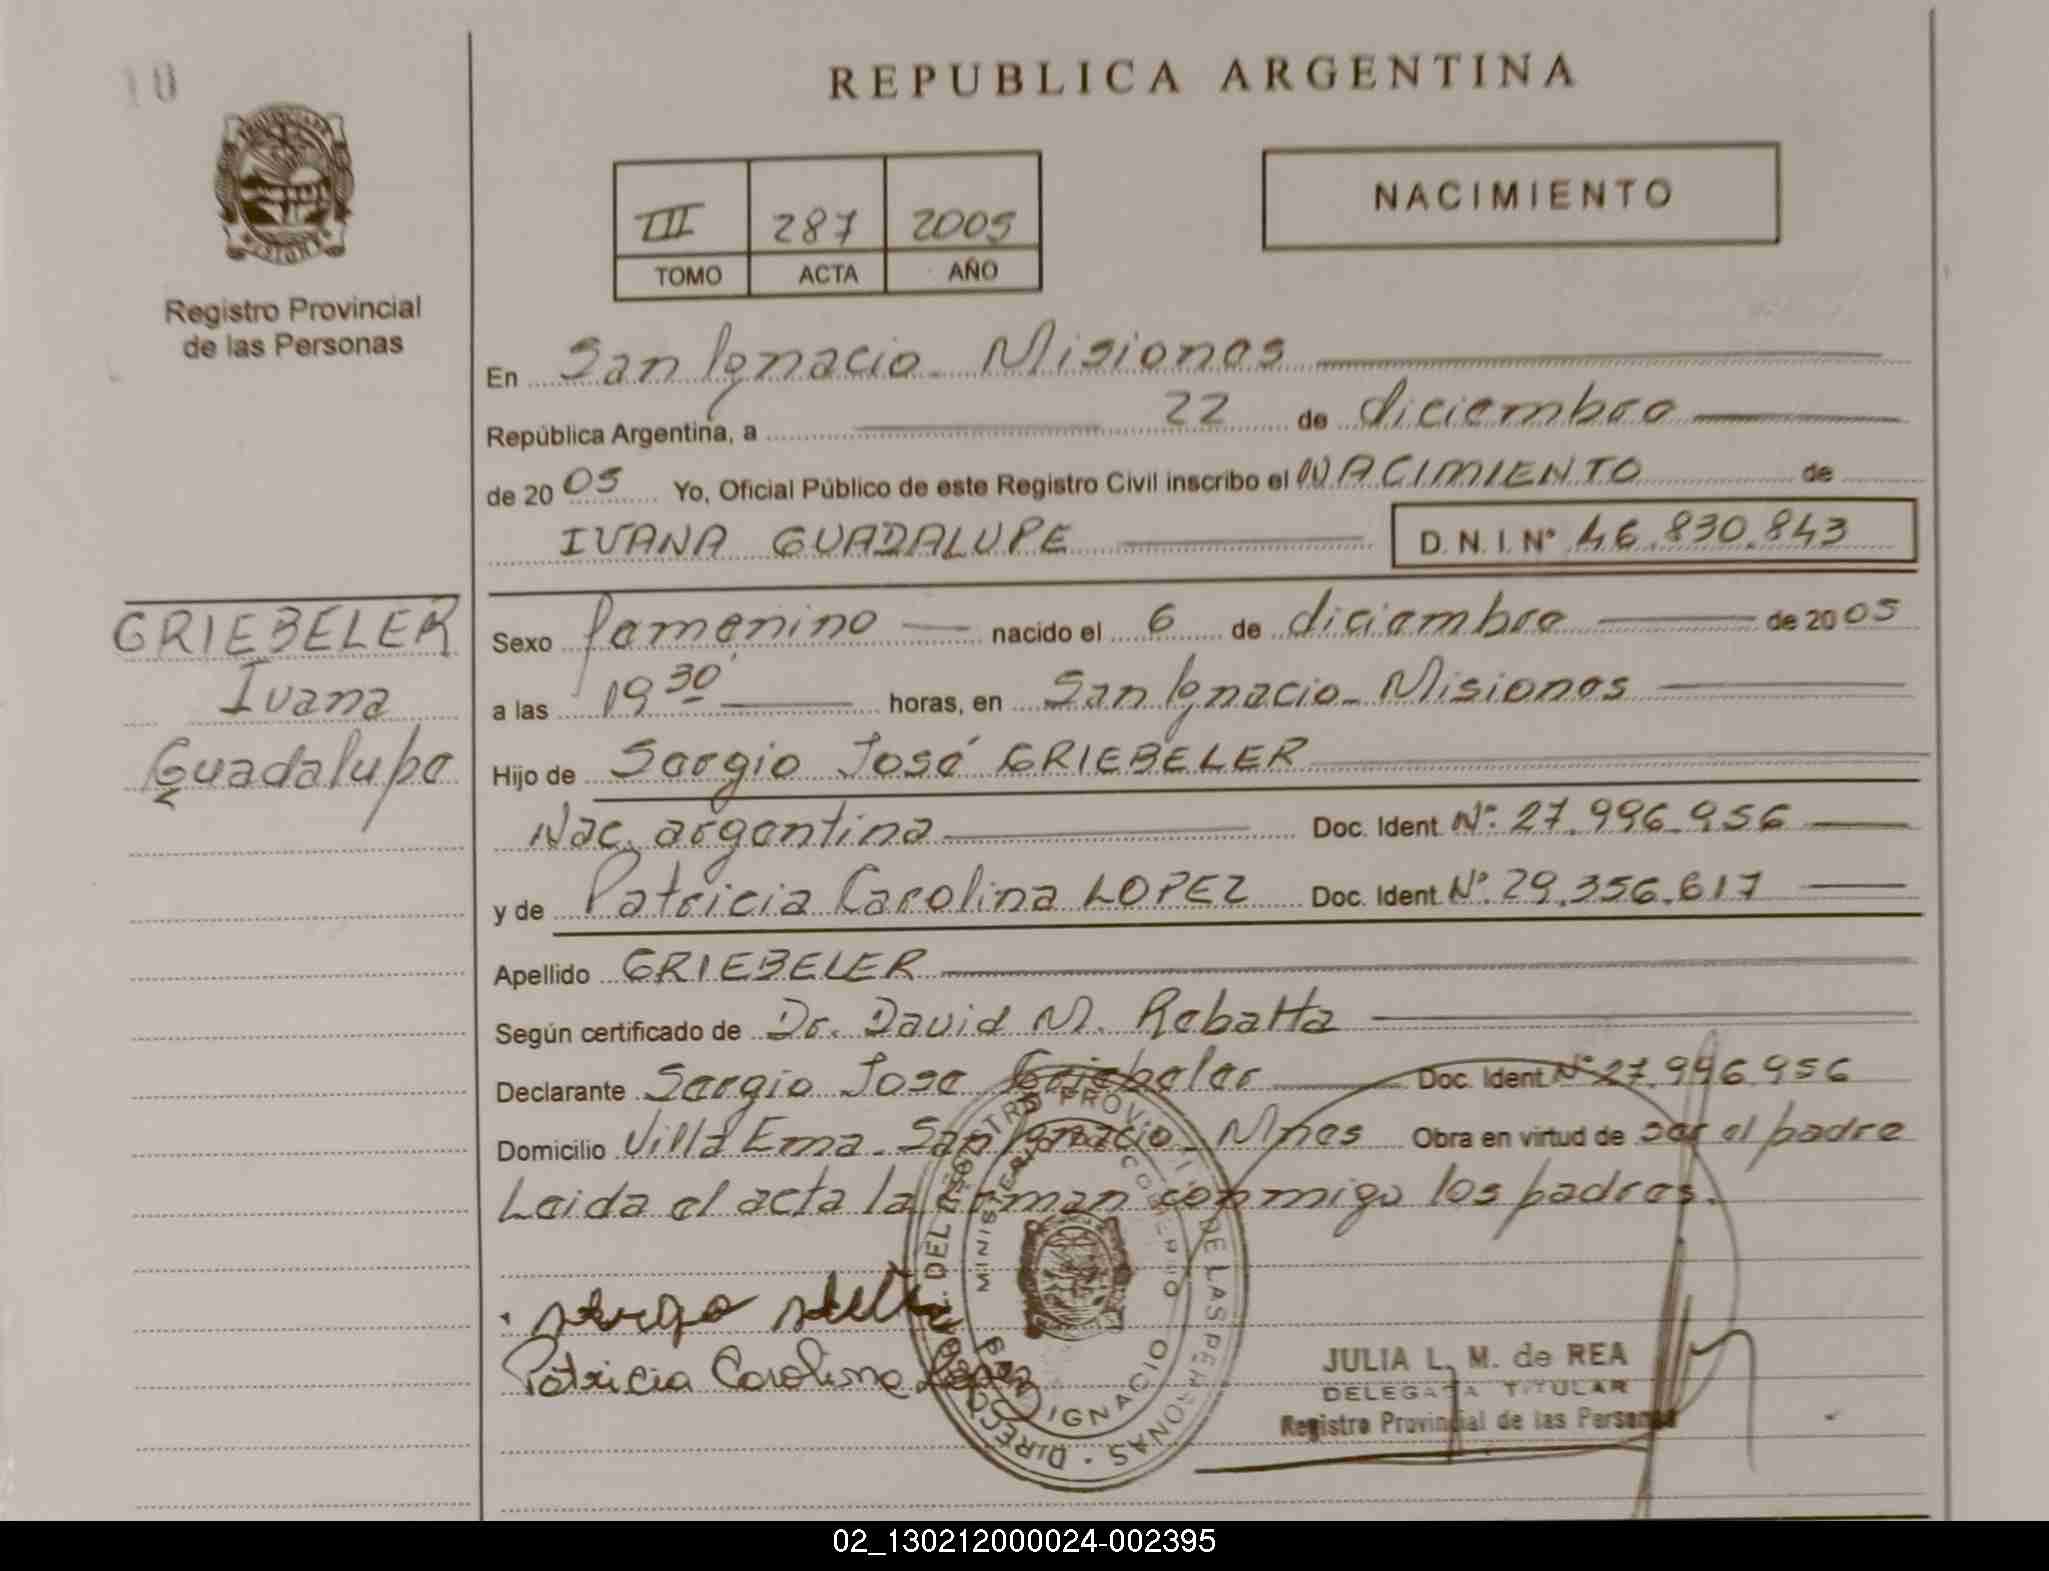 10
REPUBLICA ARGENTINA
III 287 2005
TOMO ACTA AÑO
NACIMIENTO
Registro Provincial
de las Personas
En San Ignacio - Misiones
República Argentina, a 22 de diciembre
de 2005 Yo, Oficial Público de este Registro Civil inscribo el NACIMIENTO de
IVANA GUADALUPE D. N. I. N° 46.830.843
GRIEBELER
Ivana
Guadalupe
Sexo femenino nacido el 6 de diciembre de 2005
a las 19 30' horas, en San Ignacio - Misiones
Hijo de Sergio José GRIEBELER
Nac. argentina Doc. Ident. N°: 27.996.956
y de Patricia Carolina LOPEZ Doc. Ident. N°. 29.356.617
Apellido GRIEBELER
Según certificado de Dr. David M. Rebatta
Declarante Sergio Jose Griebeler Doc. Ident N° 27.996.956
Domicilio Villa Ema - San Ignacio - Mnes Obra en virtud de ser el padre
Leida el acta la firman conmigo los padres.
Patricia Carolina Lopez
DIRECC. GRAL. DEL REGISTRO PROVINCIAL DE LAS PERSONAS
MINISTERIO DE GOBIERNO
IGNACIO
JULIA L. M. de REA
DELEGADA TITULAR
Registro Provincial de las Personas
02_130212000024-002395